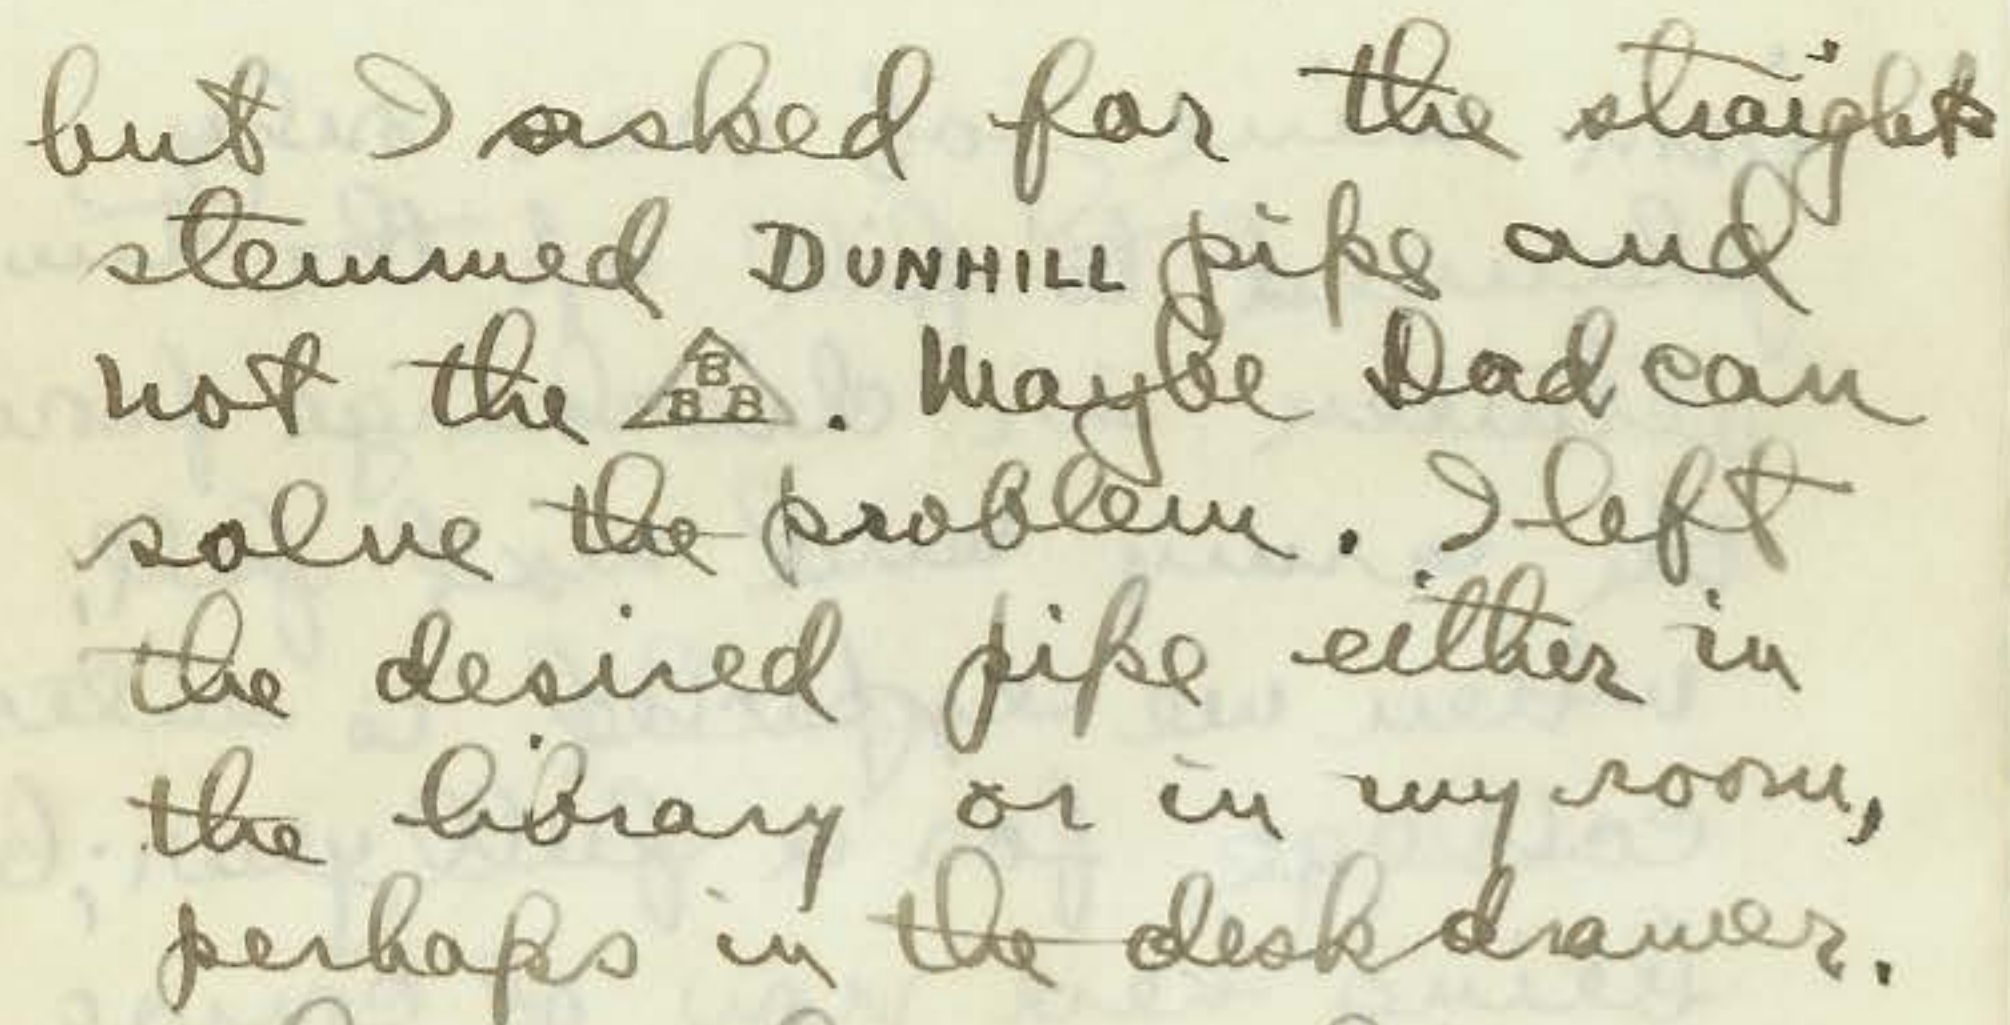 but I asked for the straight
stemmed DUNHILL pipe and
not the BBB. Maybe Dad can
solve the problem. I left
the desired pipe either in
the library or in my room,
perhaps in the desk drawer.